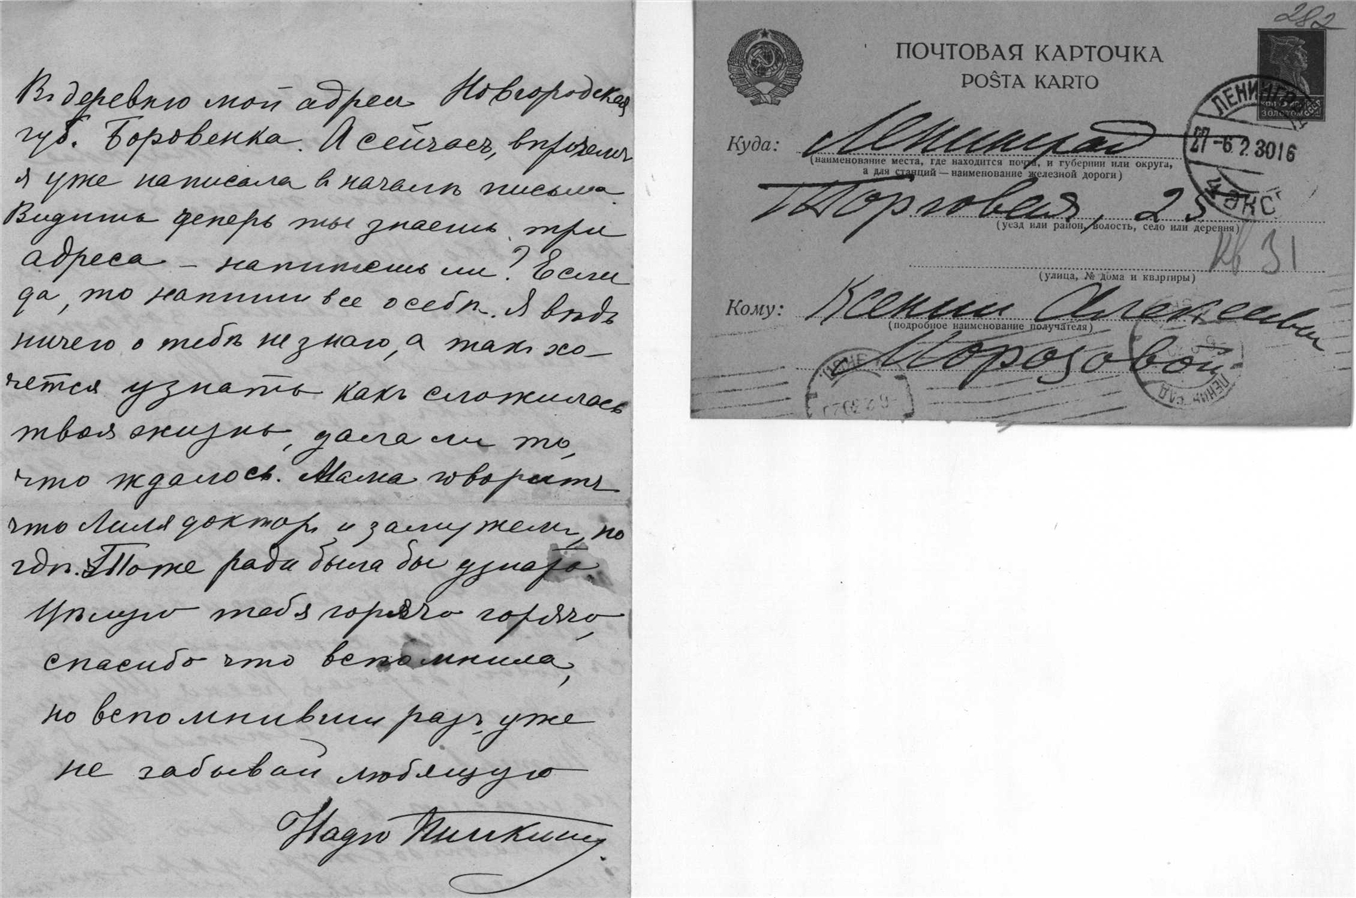 Въ деревню мой адресъ Новгородская
губ. Боровенка. А сейчасъ, впрочемъ
я уже написала въ началѣ письма.
Видишь теперь ты знаешь три
адреса – напишешь ли? Если
да, то напиши все о себѣ. Я вѣдь
ничего о тебѣ не знаю, а такъ хо-
чется узнать какъ сложилась
твоя жизнь, дала ли то,
что ждалось. Мама говоритъ
что Лиля докторъ и замужемъ, но
гдѣ. Тоже рада была бы узнать
Цѣлую тебя горячо горячо,
спасибо что вспомнила,
но вспомнивши разъ, уже
не забывай любящую
Надю
282
ПОЧТОВАЯ КАРТОЧКА
POŜTA KARTO
ЛЕНИНГРАД
27-6 2.3016
ЗОЛОТОМ
Куда: Ленинград
(наименование места, где находится почта, и губернии или округа,
а для станций—наименование железной дороги)
Торговая, 25
(уезд или район, волость, село или деревня)
кв 31
(улица, № дома и квартиры)
Кому: Ксении Алексеевне
(подробное наименование получателя)
Морозовой